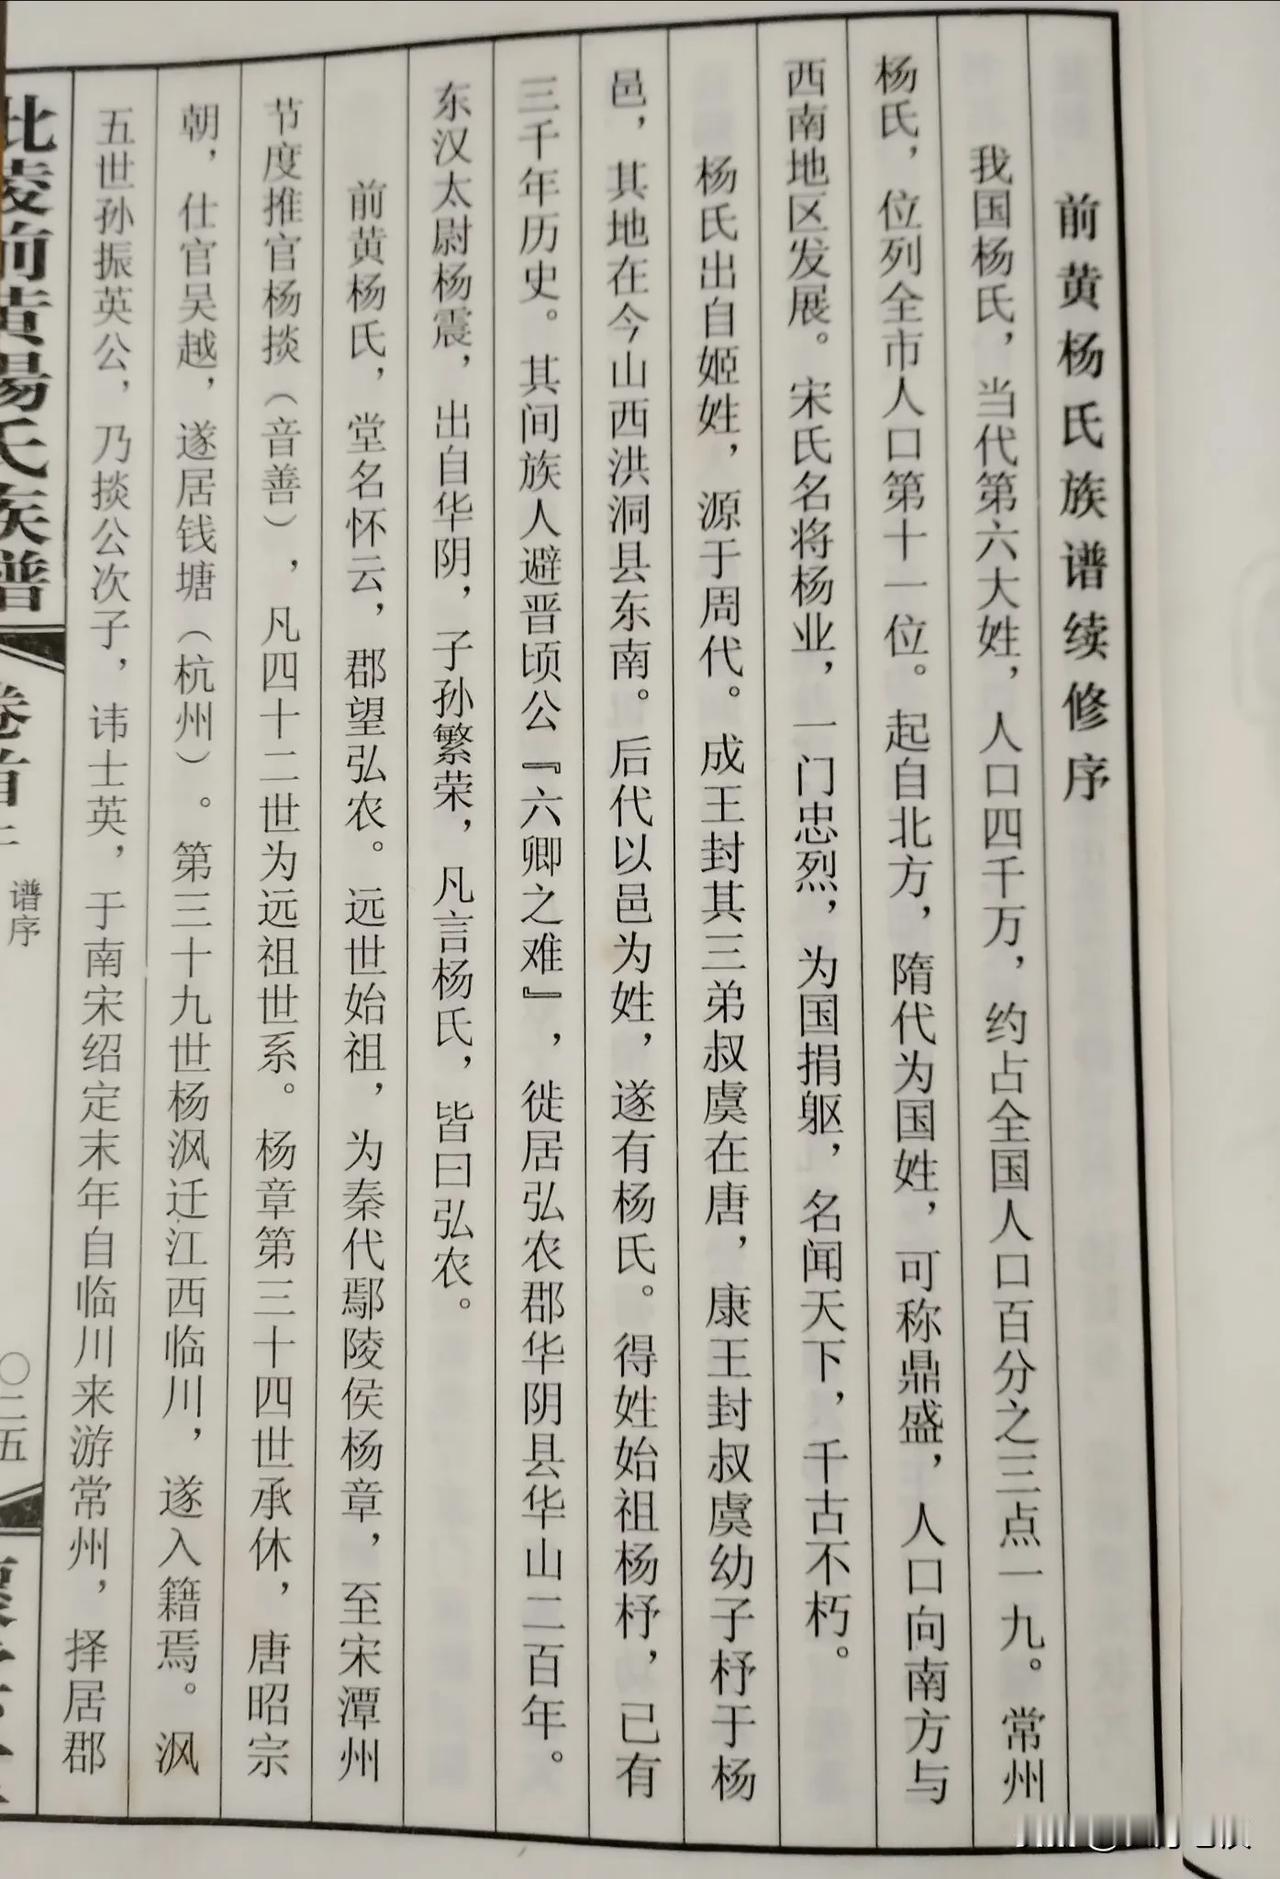 前黄杨氏族谱续修序
我国杨氏，当代第六大姓，人口四千万，约占全国人口百分之三点一九。常州
杨氏，位列全市人口第十一位。起自北方，隋代为国姓，可称鼎盛，人口向南方与
西南地区发展。宋氏名将杨业，一门忠烈，为国捐躯，名闻天下，千古不朽。
杨氏出自姬姓，源于周代。成王封其三弟叔虞在唐，康王封叔虞幼子杼于杨
邑，其地在今山西洪洞县东南。后代以邑为姓，遂有杨氏。得姓始祖杨杼，已有
三千年历史。其间族人避晋顷公『六卿之难』，徙居弘农郡华阴县华山二百年。
东汉太尉杨震，出自华阴，子孙繁荣，凡言杨氏，皆曰弘农。
前黄杨氏，堂名怀云，郡望弘农。远世始祖，为秦代鄢陵侯杨章，至宋潭州
节度推官杨掞（音善），凡四十二世为远祖世系。杨章第三十四世承休，唐昭宗
朝，仕官吴越，遂居钱塘（杭州）。第三十九世杨沨迁江西临川，遂入籍焉。沨
五世孙振英公，乃掞公次子，讳士英，于南宋绍定末年自临川来游常州，择居郡
毗陵前黄杨氏族谱
卷首上
谱序
〇二五